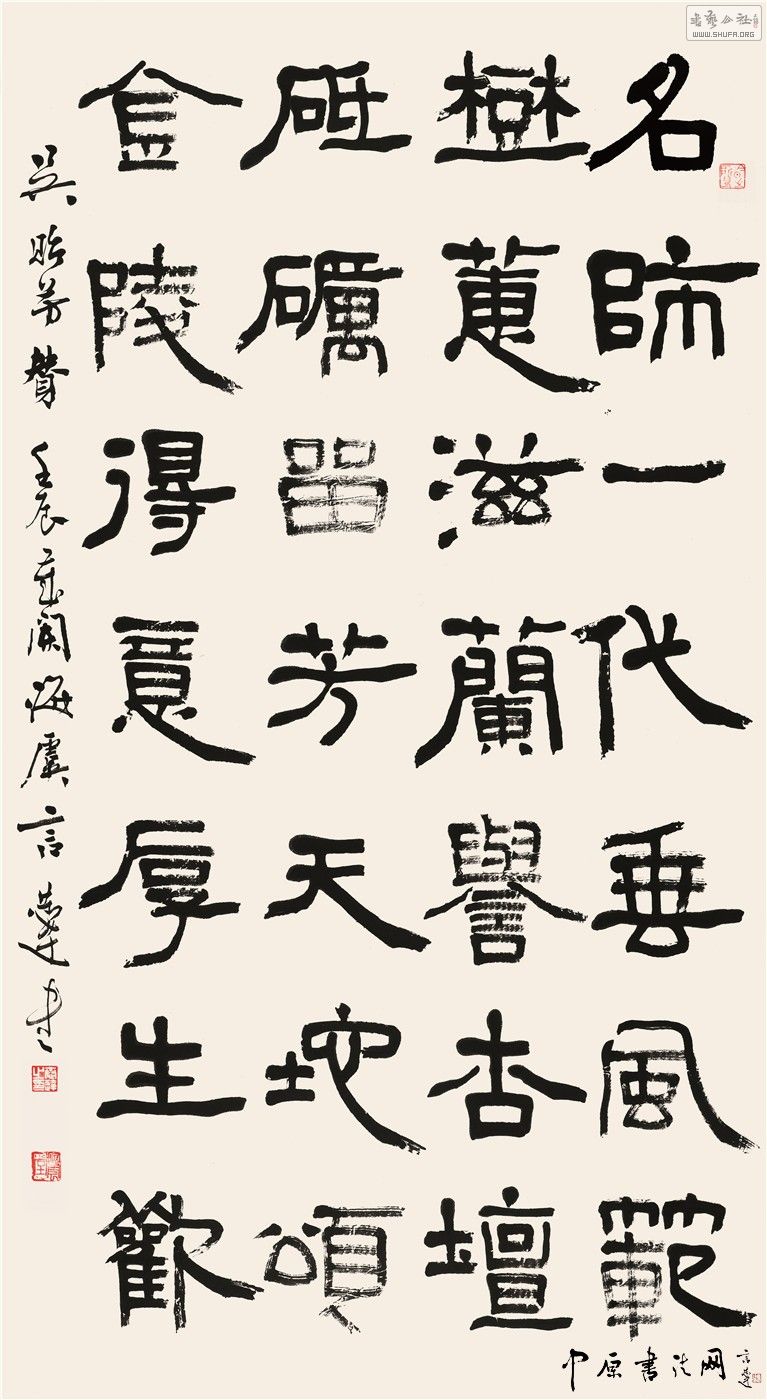 書藝公社
WWW.SHUFA.ORG
名師一代垂風範
樹蕙滋蘭譽杏壇
砥礪留芳天地頌
金陵得意厚生歡
吳貽芳贊 壬辰歲闌海虞言恭達書
中原書法网 言恭達